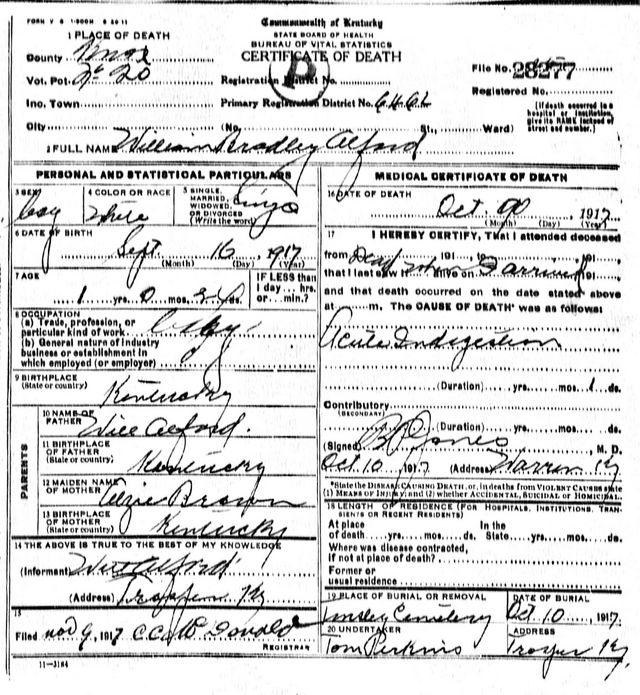 FORM V S 1-500M 5 20 11
Commonwealth of Kentucky
STATE BOARD OF HEALTH
BUREAU OF VITAL STATISTICS
CERTIFICATE OF DEATH
1 PLACE OF DEATH
County Knox
Vot. Pct. 20
Ino. Town
City
(No. St., Ward)
Registration District No.
Primary Registration District No.
File No. 28277
Registered No.
(If death occurred in a
hospital or institution,
give its NAME instead of
street and number.)
2 FULL NAME William Bradley Alford
PERSONAL AND STATISTICAL PARTICULARS
3 SEX Boy
4 COLOR OR RACE White
5 SINGLE,
MARRIED,
WIDOWED,
OR DIVORCED
(Write the word)
Single
6 DATE OF BIRTH
Sept. 16, 1917
(Month) (Day) (Year)
7 AGE
1 yrs. 0 mos. ds.
IF LESS than
1 day ... hrs.
or ... min.?
8 OCCUPATION
(a) Trade, profession, or
particular kind of work
(b) General nature of industry
business or establishment in
which employed (or employer)
9 BIRTHPLACE
(State or country)
Kentucky
PARENTS
10 NAME OF
FATHER
Will Alford.
11 BIRTHPLACE
OF FATHER
(State or country)
Kentucky
12 MAIDEN NAME
OF MOTHER
Brown
13 BIRTHPLACE
OF MOTHER
(State or country)
Kentucky
14 THE ABOVE IS TRUE TO THE BEST OF MY KNOWLEDGE
(Informant) Will Alford
(Address) Ky
15
Filed Nov 9, 1917
REGISTRAR
11-3184
MEDICAL CERTIFICATE OF DEATH
16 DATE OF DEATH
Oct. 1917
(Month) (Day) (Year)
17 I HEREBY CERTIFY, That I attended deceased
from 191 191
that I last saw h 191
and that death occurred on the date stated above
at m. The CAUSE OF DEATH* was as follows:
Acute Indigestion
(Duration) yrs. mos. 1 ds.
Contributory
(SECONDARY)
(Duration) yrs. mos. ds.
(Signed) Jones, M. D.
Oct 10, 1917 (Address) Ky.
*State the DISEASE CAUSING DEATH, or, in deaths from VIOLENT CAUSES state
(1) MEANS OF INJURY; and (2) whether ACCIDENTAL, SUICIDAL or HOMICIDAL.
18 LENGTH OF RESIDENCE (FOR HOSPITALS, INSTITUTIONS, TRANSIENTS OR RECENT RESIDENTS)
At place
of death yrs. mos. ds.
In the
State yrs. mos. ds.
Where was disease contracted,
if not at place of death?
Former or
usual residence
19 PLACE OF BURIAL OR REMOVAL
Tinsley Cemetery
DATE OF BURIAL
Oct 10, 1917
20 UNDERTAKER
Tom Perkins
ADDRESS
Ky.